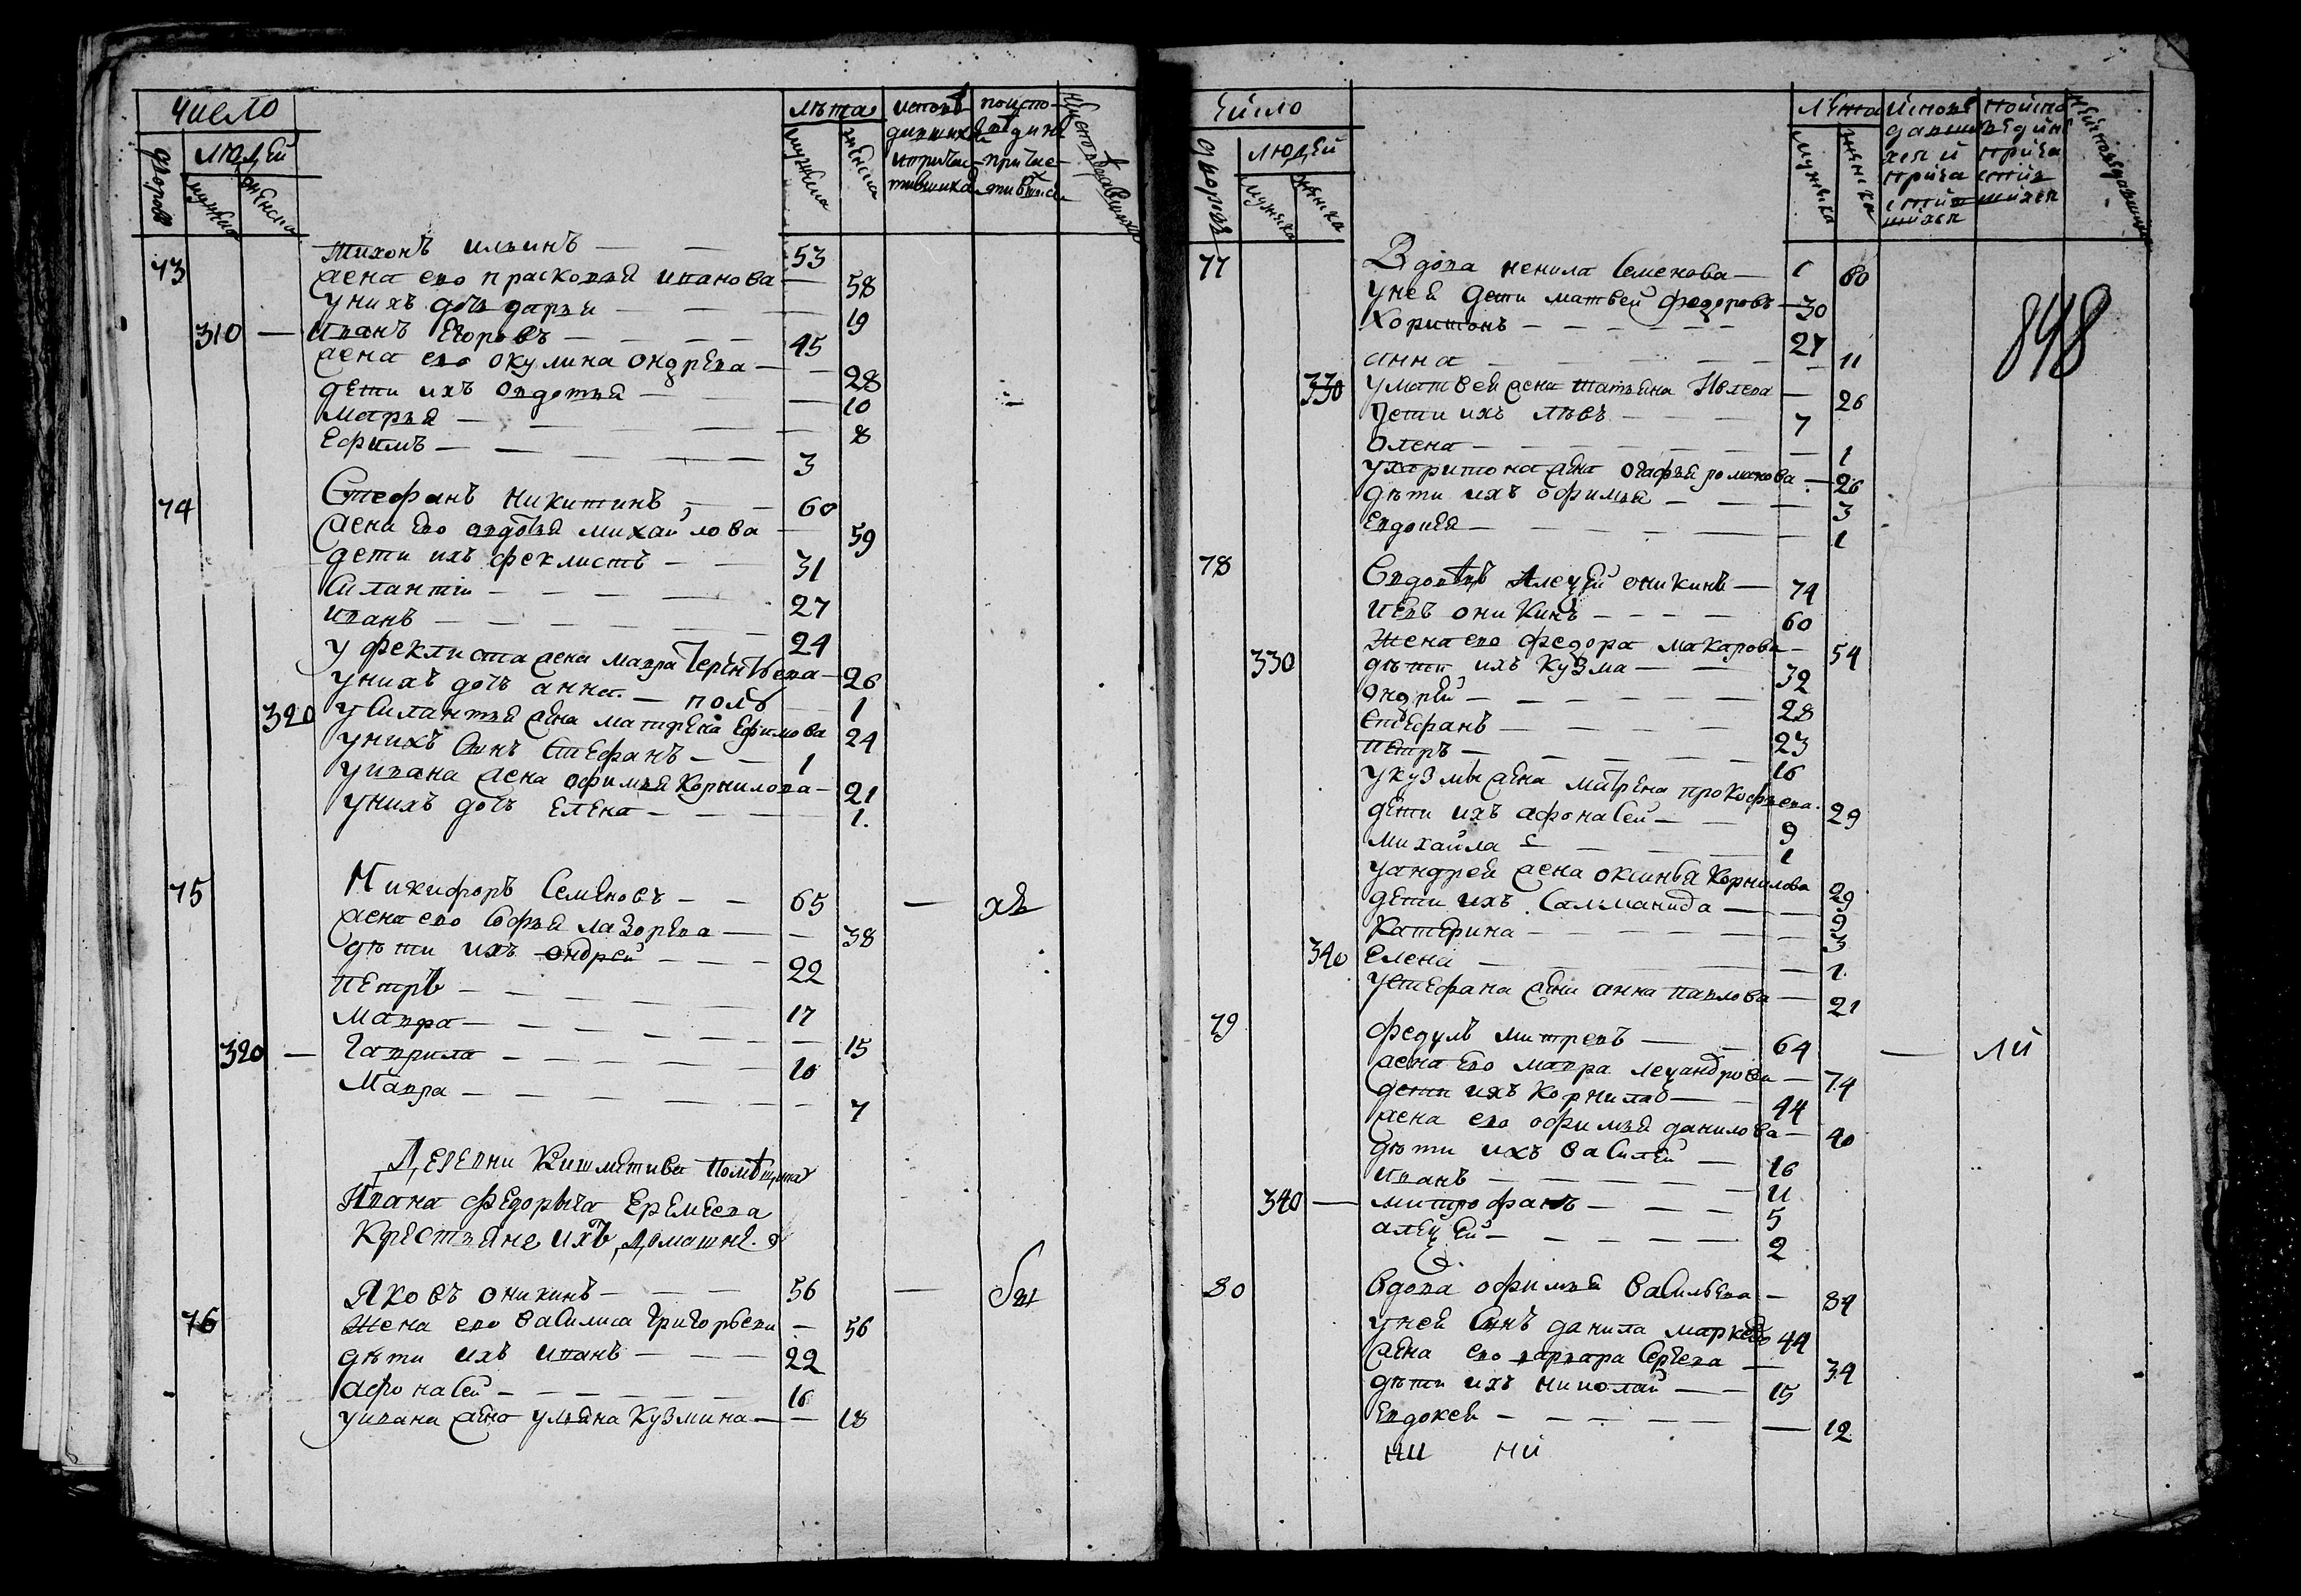 Число
лѣта
исповѣ
поиспо
дворовъ
людей
мужеска
женска
73 Тихонъ Ильинъ — — 53
жена ево Прасковья Иванова — 58
у нихъ дочь Дарья — — 19
310 — Иванъ Егоровъ — — 45
жена ево Окулина Ондрева — — 28
дети ихъ Овдотья — — 10
Марья — — — 8
Ефимъ — — — 3
74 Стефанъ Никитинъ — — 60
жена ево Овдотья Михайлова — 59
дети ихъ Феклистъ — — 31
Силантии — — — 27
Иванъ — — — 24
у Феклиста жена Мавра Терентьева — 26
у нихъ дочь Анна — полъ 1
320 у Силантья жена Матрена Ефимова 24
у нихъ сынъ Стефанъ — — 1
у Ивана жена Офимья Корнилова — 21
у нихъ дочь Елена — — 1.
75 Никифоръ Семеновъ — — 65 —
жена ево Софья Лазорева — — 38
дѣти ихъ Ондрей — — — 22
Петръ — — — 17
Мавра — — — 15
320 — Гаврила — — — 10
Мавра — — — 7
Деревни Помѣщика
Ивана Федорыча Еремеева
Крестьяне ихъ домашне
76 Яковъ Оникинъ — — 56 —
Жена ево Василиса Григорьева — 56
дѣти ихъ Иванъ — — — 22
Афонасей — — — 16
у Ивана жена Ульяна Кузмина — — 18
Число
Лѣта
дворовъ
людей
мужска
женска
77 Вдова Ненила Семенова — 60
848
у ней дети Матвей Федоровъ — 30
Харитонъ — — — 27
Анна — — — 11
330 у Матвея жена Татьяна Ивлева — 26
дети ихъ Левъ — — 7
Олена — — — 1
у Харитона жена Огафья Романова — 26
дѣти ихъ Офимья — — 3
Евдокея — — — 1
78 Вдовѣцъ Алеѯей Оникинъ — 74
Иевъ Оникинъ — — — 60
Жена ево Федора Макарова — 54
330 дѣти ихъ Кузма — — 32
Ондрей — — — 28
Стефанъ — — — 23
Петръ — — — 16
у Кузмы жена Матрена Прокофьева 29
дети ихъ Афонасей — — 9
Михайла — — — 1
у Андрея жена Оксинья Корнилова 29
дети ихъ Саломанида — — 9
Катерина — — — 3
340 Елена — — — 1.
у Стефана жена Анна Павлова — 21
79 Федулъ Митревъ — — 64 —
жена ево Мавра Леѯандрова — 74
дети ихъ Корнила — — 44
жена ево Офимья Данилова — 40
дѣти ихъ Василей — 16
Иванъ — — — 11
340 — Митрофанъ — — — 5
Алеѯей — — — 2
80 Вдова Офимья Васильева — 84
у ней сынъ Данила Марковъ 44
жена ево Варвара Сергева — 34
дѣти ихъ Николай — — 15
Евдокея — — — 12
ни ни